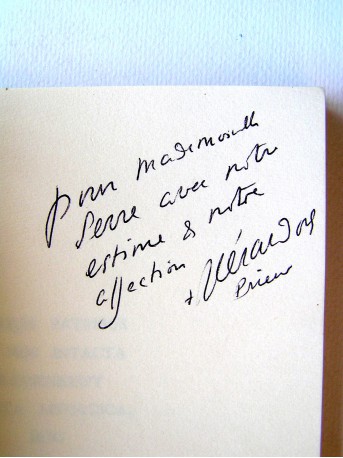 Pour mademoiselle
Serre avec notre
estime & notre
affection
+ Gérard osb
Prieur